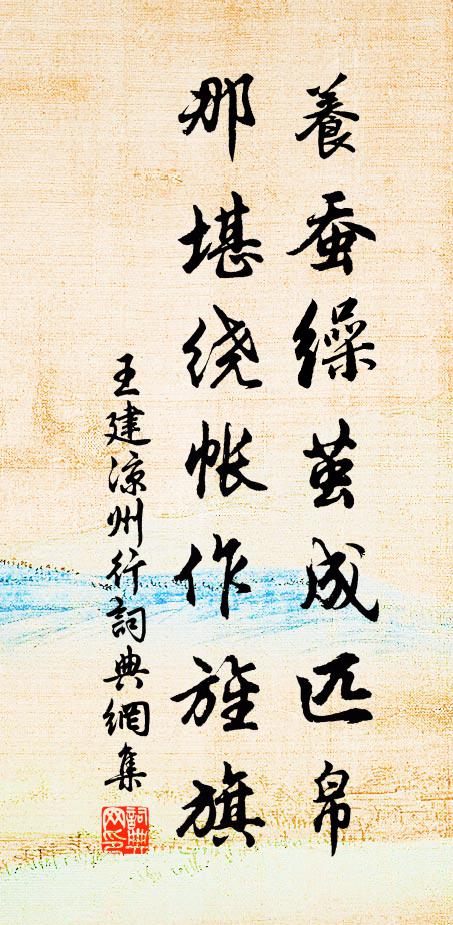 養蚕繰茧成匹帛
那堪绕帐作旌旗
王建凉州行詞典網集
詞典网印